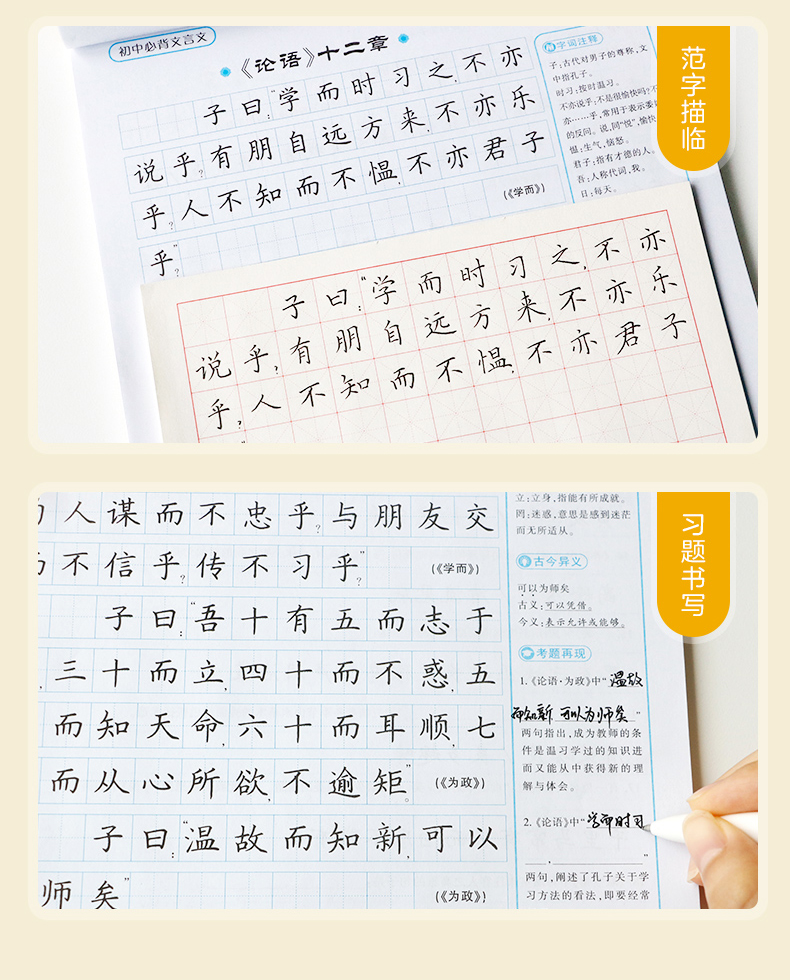 范字描临
初中必背文言文
《论语》十二章
子曰:“学而时习之,不亦
说乎?有朋自远方来,不亦乐
乎?人不知而不愠,不亦君子
乎?”
(《学而》)
字词注释
子:古代对男子的尊称,文
中指孔子。
时习:按时温习。
不亦说乎:不是很愉快吗?不
亦……乎,常用于表示委
的反问。说,同“悦”,愉快
愠:生气,恼怒。
君子:指有才德的人。
吾:人称代词,我。
日:每天。
子曰:“学而时习之,不亦
说乎,有朋自远方来,不亦乐
乎,人不知而不愠,不亦君子
习题书写
人谋而不忠乎?与朋友交
不信乎?传不习乎?”
(《学而》)
子曰:“吾十有五而志于
三十而立,四十而不惑,五
而知天命,六十而耳顺,七
而从心所欲,不逾矩。”
(《为政》)
子曰:“温故而知新,可以
师矣”
(《为政》)
立:立身,指能有所成就。
罔:迷惑,意思是感到迷茫
而无所适从。
古今异义
可以为师矣
古义:可以凭借。
今义:表示允许或能够。
考题再现
1.《论语·为政》中“温故
而知新 可以为师矣”
两句指出,成为教师的条
件是温习学过的知识进
而又能从中获得新的理
解与体会。
2.《论语》中“学而时习
,”
两句,阐述了孔子关于学
习方法的看法,即要经常